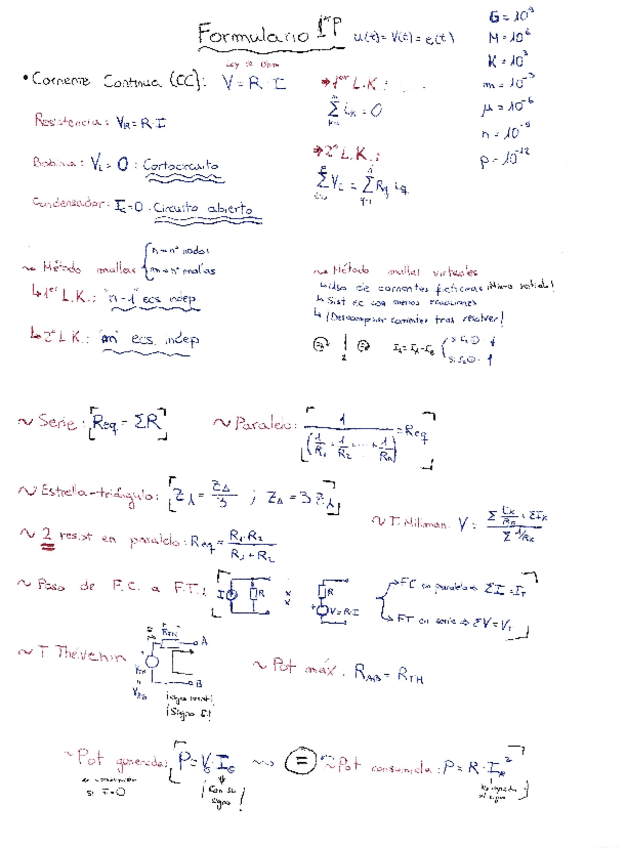 Formulario 1er P u(t)= V(t) = e(t)
G = 10⁹
M = 10⁶
K = 10³
m = 10⁻³
μ = 10⁻⁶
n = 10⁻⁹
p = 10⁻¹²
Ley de Ohm
• Corriente Continua (CC): V = R · I
→ 1er L.K.:
Σ iₖ = 0
Resistencia: V_R = R·I
→ 2º L.K.:
Bobina: V_L = 0 : Cortocircuito
Condensador: I_c = 0 : Circuito abierto
~ Método mallas { n → nº nodos
m → nº mallas
↳ 1er L.K.: "n-1" ecs. indep
↳ 2º L.K.: "m" ecs. indep
~ Método mallas virtuales
↳ Uso de corrientes ficticias ¡Mismo sentido!
↳ Sist ec con menos ecuaciones
↳ ¡Descomponer corrientes tras resolver!
~ Serie: [Req = ΣR]
~ Paralelo: [1 / (1/R₁ + 1/R₂ + ... + 1/Rₙ) = Req]
~ Estrella-triángulo: [Z⅄ = Z_Δ/3 ; Z_Δ = 3 Z⅄]
~ 2 resist en paralelo: Req = R₁·R₂ / R₁+R₂
~ T. Millman: V =
~ Paso de F.C. a F.T.: [ I R R V=R·I
FC en paralelo → ΣI = I_T
FT en serie → ΣV = V_T ]
~ T Thévenin R_TH A B
~ Pot máx. R_AB = R_TH
¡Signo I!
~ Pot generada: [P = V_G · I_G ~ (=) ~ Pot consumida: P = R · I_R²]
¡Con su signo!